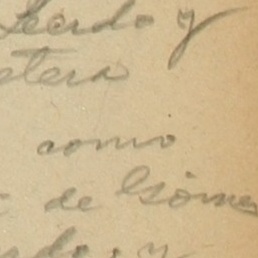 Lerdo y
etera
como
de Gómez